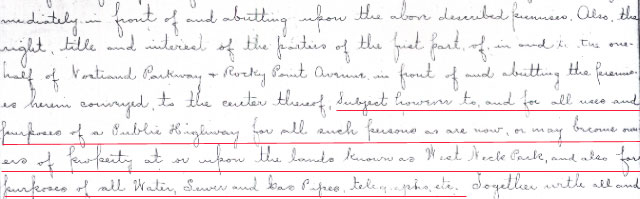 mediately in front of and abutting upon the above described premises. Also, the
right, title and interest of the parties of the first part, of, in and to the one-
half of Vostiand Parkway + Rocky Point Avenue, in front of and abutting the premis-
es herein conveyed, to the center thereof, Subject however to, and for all uses and
purposes of a Public Highway for all such persons as are now, or may become own
ers of property at or upon the lands known as West Neck Park, and also for
purposes of all Water, Sewer and Gas Pipes, telegraphs, etc. Together with all and